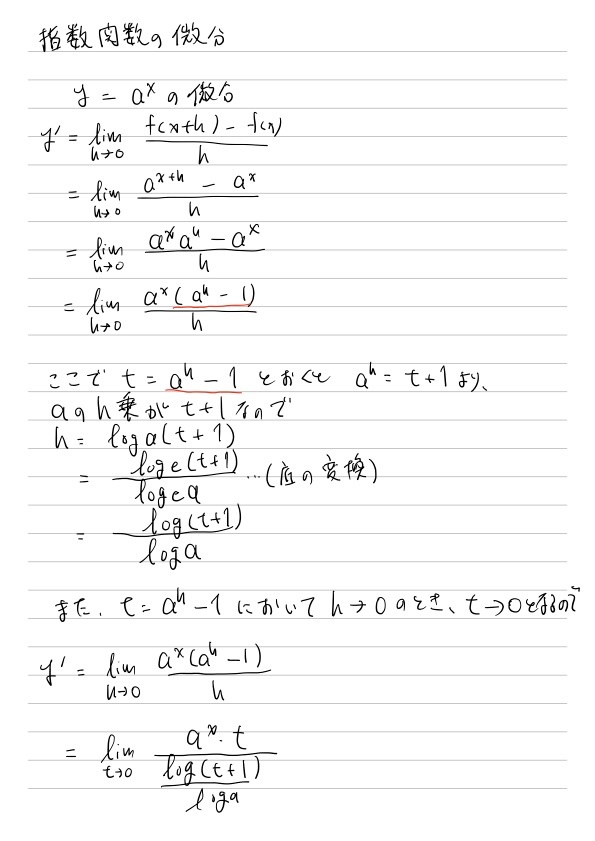 指数関数の微分
y = a^x の微分
y' = lim_{h→0} (f(x+h) - f(x))/h
= lim_{h→0} (a^{x+h} - a^x)/h
= lim_{h→0} (a^x a^h - a^x)/h
= lim_{h→0} (a^x(a^h - 1))/h
ここで t = a^h - 1 とおくと a^h = t+1 より、
aのh乗がt+1なので
h = log_a(t+1)
= (log_e(t+1))/(log_e a) …(底の変換)
= (log(t+1))/(log a)
また、t = a^h - 1 において h→0 のとき、t→0となるので
y' = lim_{h→0} (a^x(a^h - 1))/h
= lim_{t→0} (a^x・t)/((log(t+1))/(log a))